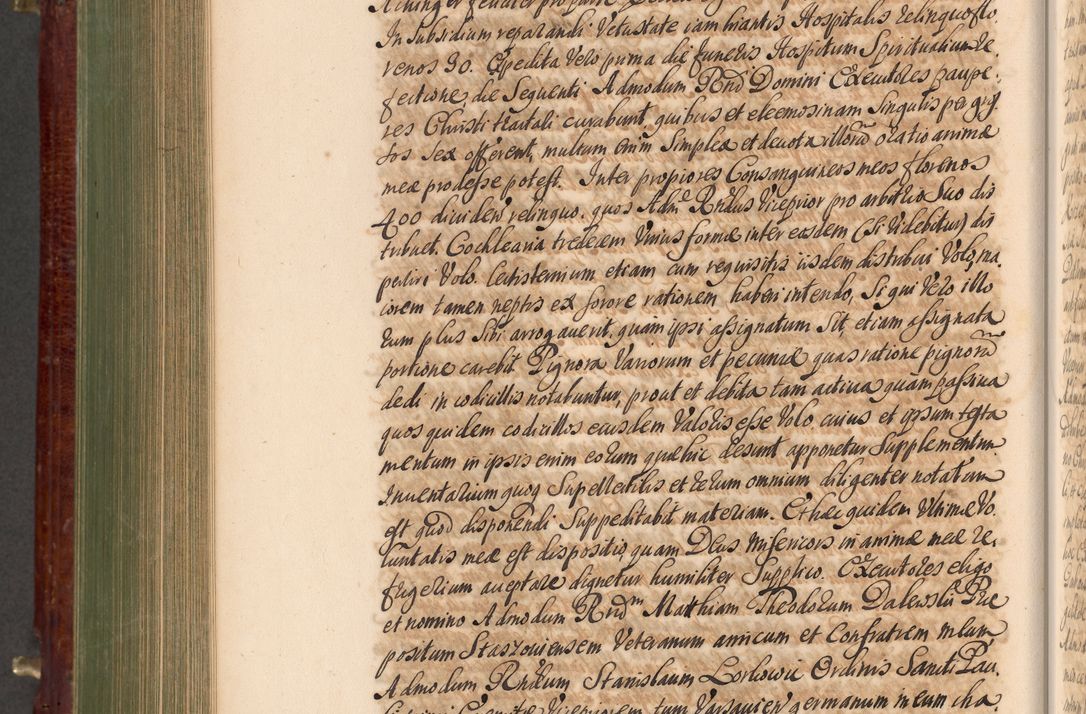 In Subsidium reparandi Vetustate iam hiantis Hospitalis relinquo flo
renos 30. Expedita Vero prima die funeris Hospitum Spiritualium re
fectione, die Sequenti Admodum Rndi Domini Executores paupe
res Christi tractali curabunt, quibus et eleemosinam Singulis per gros
sos Sex offerent, multum enim Simplex et devota illorum oratio animæ
meæ prodesse potest. Inter propiores Consanguineos meos florenos
400 dividen relinquo, quos Adm Rndus Viceprior pro arbitrio Suo dis
tribuet. Cochlearia tredecim Unius formæ inter eosdem (Si Videbitur) dis
pertiri Volo. Lectisternium etiam cum requisitis iisdem distribui Volo, ma
iorem tamen neptis ex Sorore rationem haberi intendo, Si qui Vero illo
rum plus Sibi arrogaverit, quam ipsi assignatum Sit, etiam assignata
portione carebit. Pignora Variorum et pecuniæ quas ratione pignorum
dedi in codicillis notabuntur, prout et debita tam activa quam passiva
quos quidem codicillos eiusdem Valoris esse Volo cuius et ipsum testa
mentum in ipsis enim eorum quæ hic desunt apponetur Supplementum
Inventarium quoq Supellectilis et rerum omnium diligenter notatum
est quod disponendi Suppeditabit materiam. Et hæc quidem Ultimæ Vo
luntatis meæ est dispositio, quam Deus Misericors in animæ meæ re
frigerium acceptare dignetur humiliter Supplico. Executores eligo
et nomino Admodum Rndm Matthiam Theodorum Dalewski Præ
positum Staszoviensem Veteranum amicum et Confratrem meum
Admodum Rndum Stanislaum Ordinis Sancti Pau
germanum meum cha